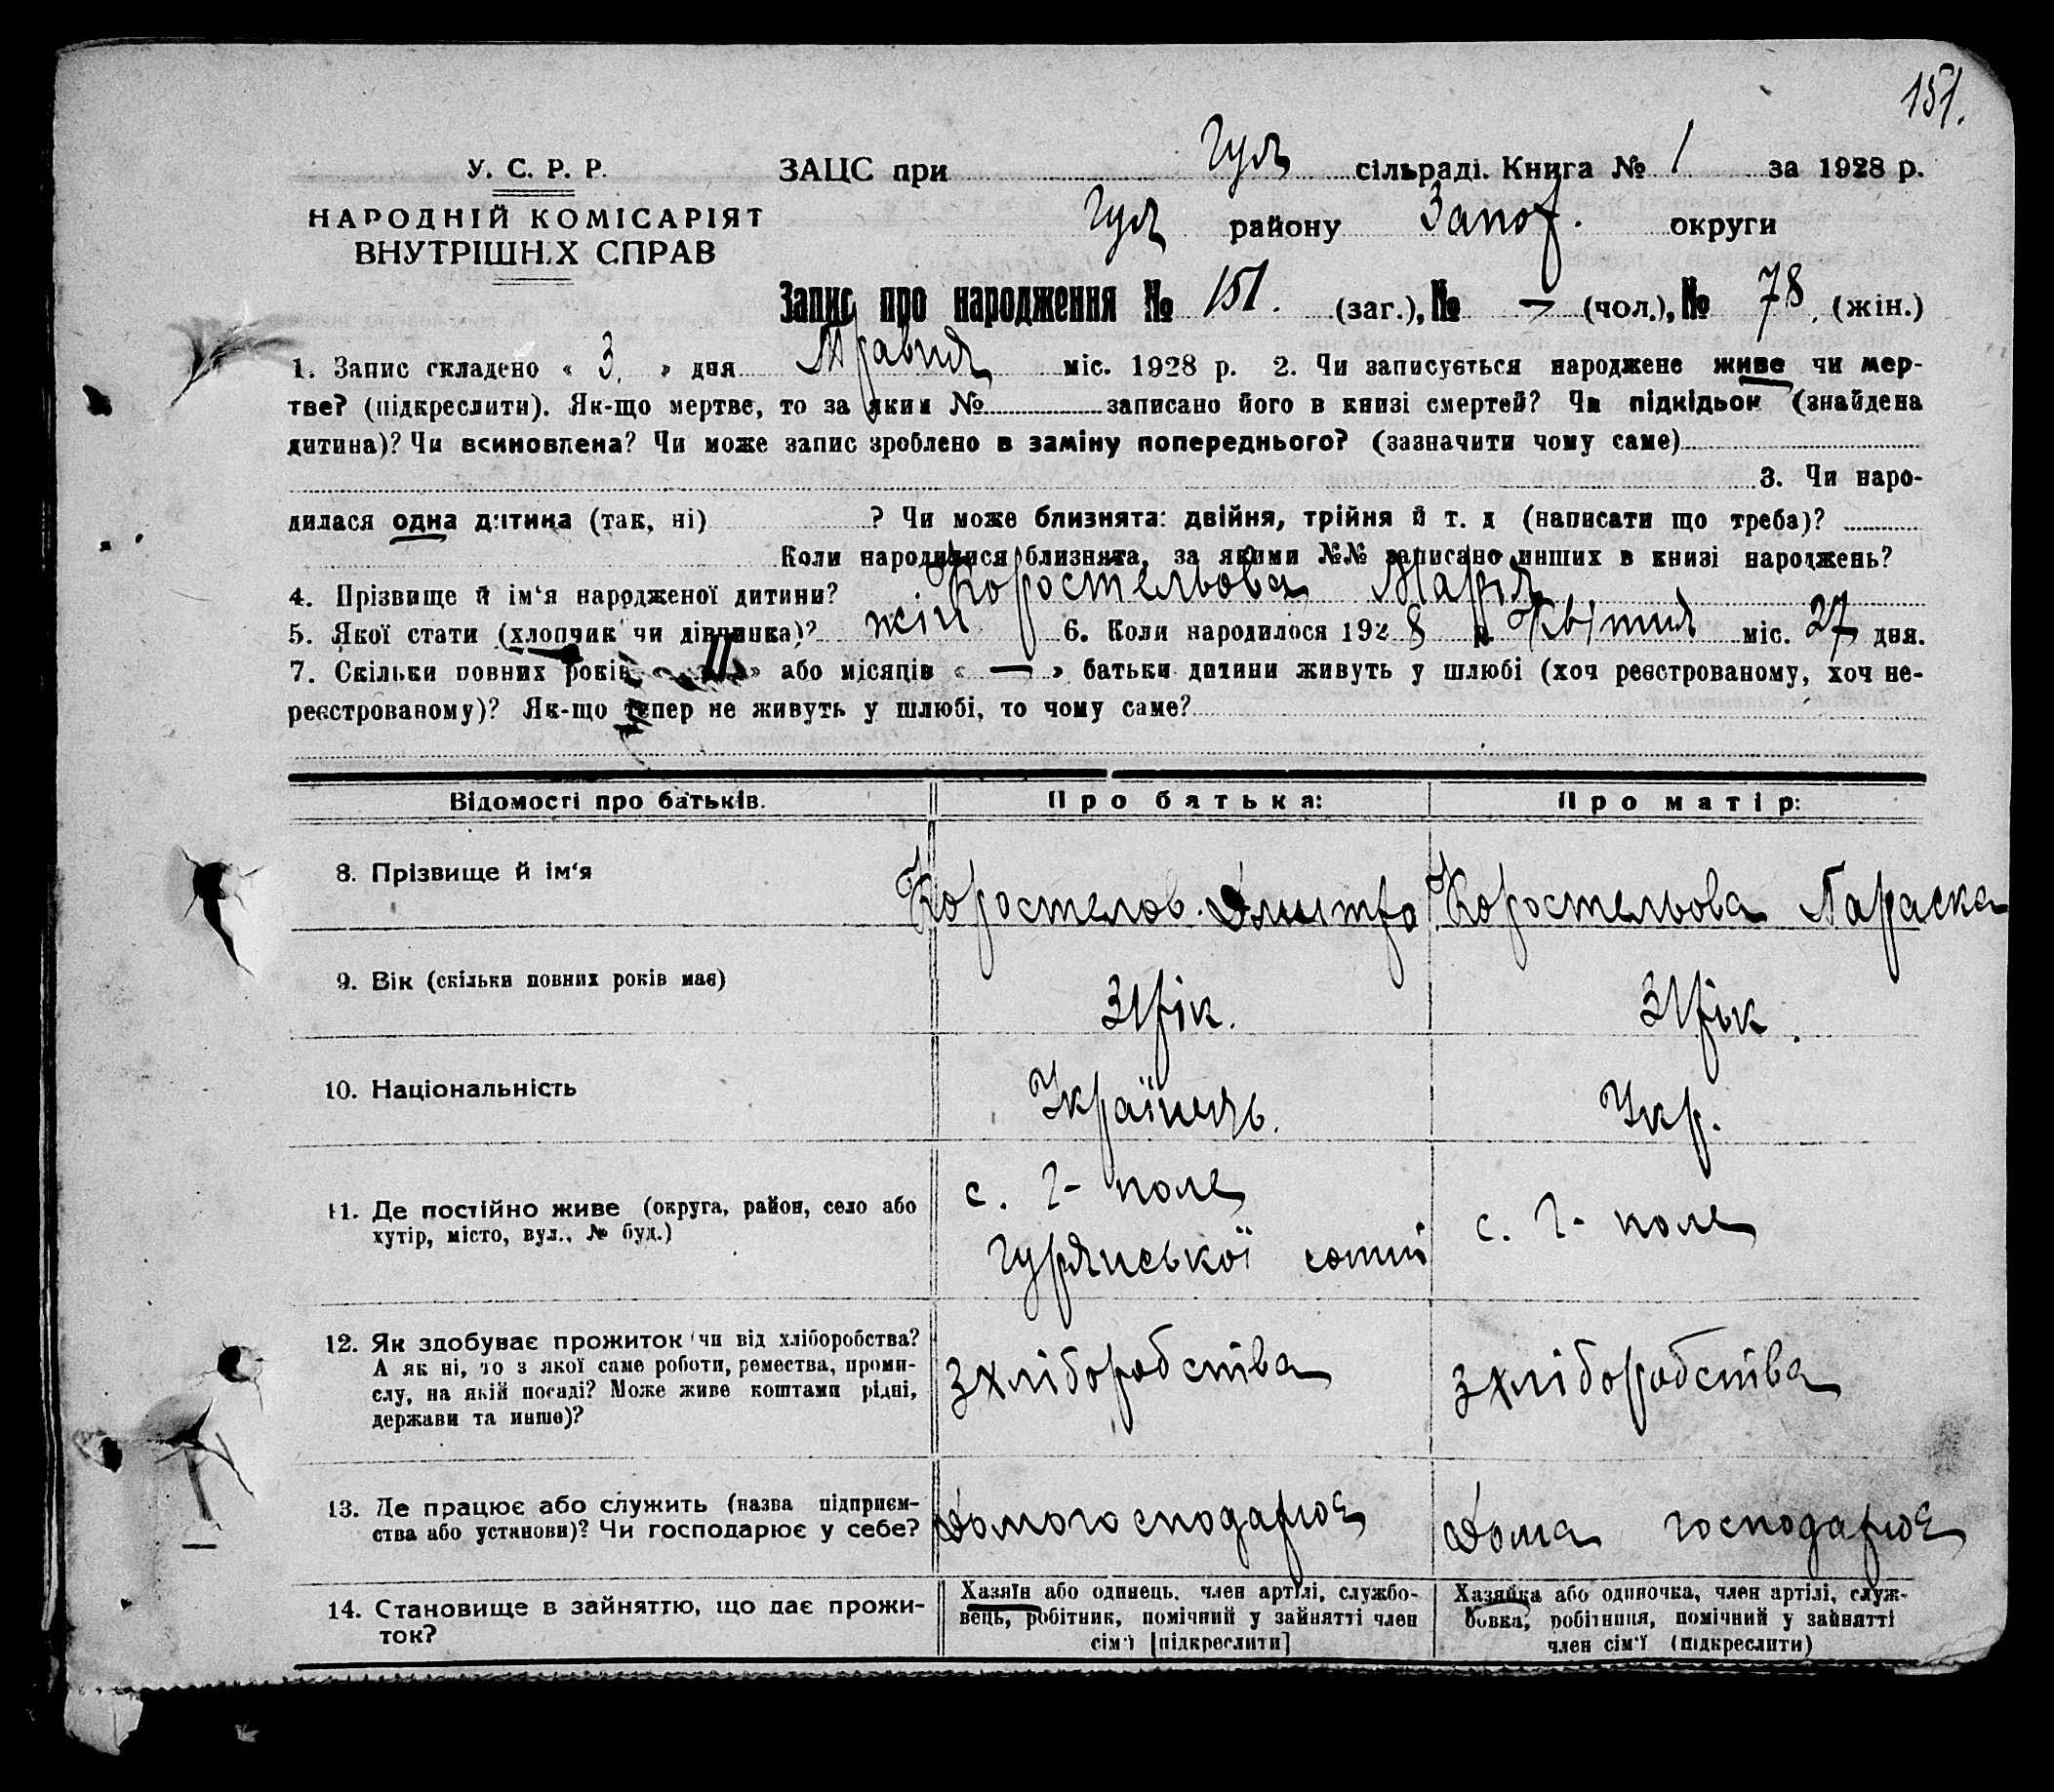 151.
У. С. Р. Р.
НАРОДНІЙ КОМІСАРІЯТ
ВНУТРІШНІХ СПРАВ
ЗАЦС при Гул сільраді. Книга № 1 за 1928 р.
Гул району Запор. округи
Запис про народження № 151. (заг.), № — (чол.), № 78. (жін.)
1. Запис складено « 3. » дня Травня міс. 1928 р. 2. Чи записується народжене живе чи мер-
тве? (підкреслити). Як-що мертве, то за яким № записано його в книзі смертей? Чи підкідьок (знайдена
дитина)? Чи всиновлена? Чи може запис зроблено в заміну попереднього? (зазначити чому саме)
3. Чи наро-
дилася одна дитина (так, ні) ? Чи може близнята: двійня, трійня й т. д (написати що треба)?
Коли народилися близнята, за якими №№ записано инших в книзі народжень?
4. Прізвище й ім‘я народженої дитини? Коростельова Марія
5. Якої стати (хлопчик чи дівчинка)? жін 6. Коли народилося 1928 р Квітня міс. 27 дня.
7. Скільки повних років « 11 » або місяців « — » батьки дитини живуть у шлюбі (хоч реєстрованому, хоч не-
реєстрованому)? Як-що тепер не живуть у шлюбі, то чому саме?
Відомості про батьків. Про батька: Про матір:
8. Прізвище й ім‘я Коростелов. Дмитро Коростельова Параска
9. Вік (скільки повних років має) 31 рік. 31 рік.
10. Національність Українець. Укр.
11. Де постійно живе (округа, район, село або
хутір, місто, вул., № буд.)
с. Г- поле
Гурянської сотні
с. Г- поле
12. Як здобуває прожиток чи від хліборобства?
А як ні, то з якої саме роботи, ремества, проми-
слу, на якій посаді? Може живе коштами рідні,
держави та инше)?
з хліборобства
з хліборобства
13. Де працює або служить (назва підприєм-
ства або установи)? Чи господарює у себе?
Домогосподарює
Дома господарює
14. Становище в зайняттю, що дає прожи-
ток?
Хазяїн або одинець, член артілі, службо-
вець, робітник, помічний у зайнятті член
сім‘ї [підкреслити]
Хазяйка або одиночка, член артілі, служ-
бовка, робітниця, помічний у зайнятті
член сім‘ї (підкреслити)